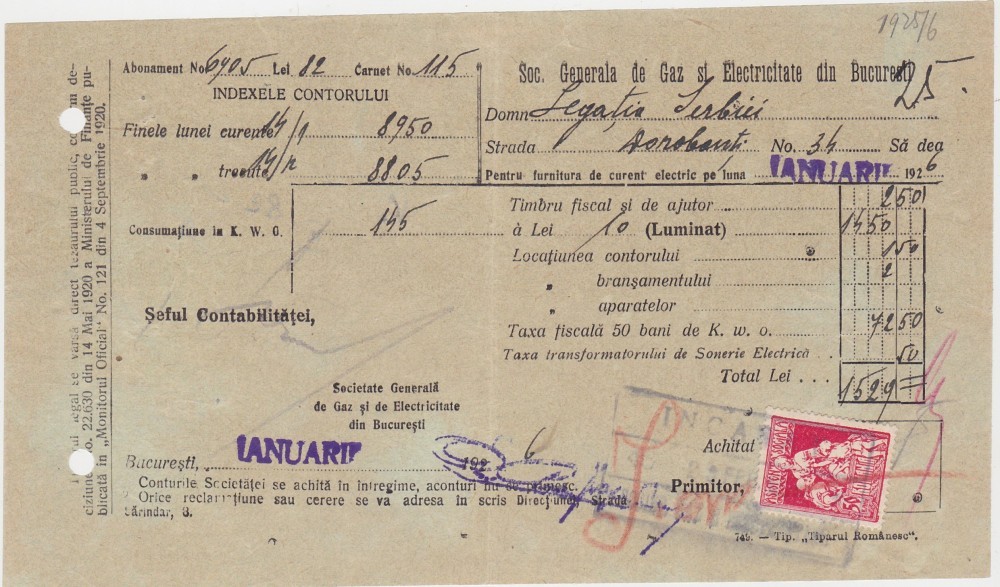 1925/6
Abonament No 6905 Lei 82 Carnet No. 115
INDEXELE CONTORULUI
Finele lunei curente 14/1 8950
" " trecute 14/12 8805
Consumațiune în K. W. O. 145
Șeful Contabilităței,
Societate Generală
de Gaz și de Electricitate
din București
București, IANUARIE 192 6
Conturile Societăței se achită în întregime, aconturi nu se primesc.
Orice reclamațiune sau cerere se va adresa in scris Direcțiunei, Strada
Sărindar, 8.
Soc. Generala de Gaz si Electricitate din Bucuresti
25.
Domn Legația Serbiei
Strada Dorobanți No. 34 Să dea
Pentru furnitura de curent electric pe luna IANUARIE 1926
Timbru fiscal și de ajutor 2 50
à Lei 10 (Luminat) 1450
Locațiunea contorului 1 50
" branșamentului 2
" aparatelor
Taxa fiscală 50 bani de K. w. o. 72 50
Taxa transformatorului de Sonerie Electrică 50
Total Lei 1529
Achitat
INCA
Primitor,
749. — Tip. „Tiparul Românesc".
legal se varsă direct tezaurului public, conform de-
ciziunei No. 22.630 din 14 Mai 1920 a Ministerului de Finanțe pu-
blicată în „Monitorul Oficial" No. 121 din 4 Septembrie 1920.